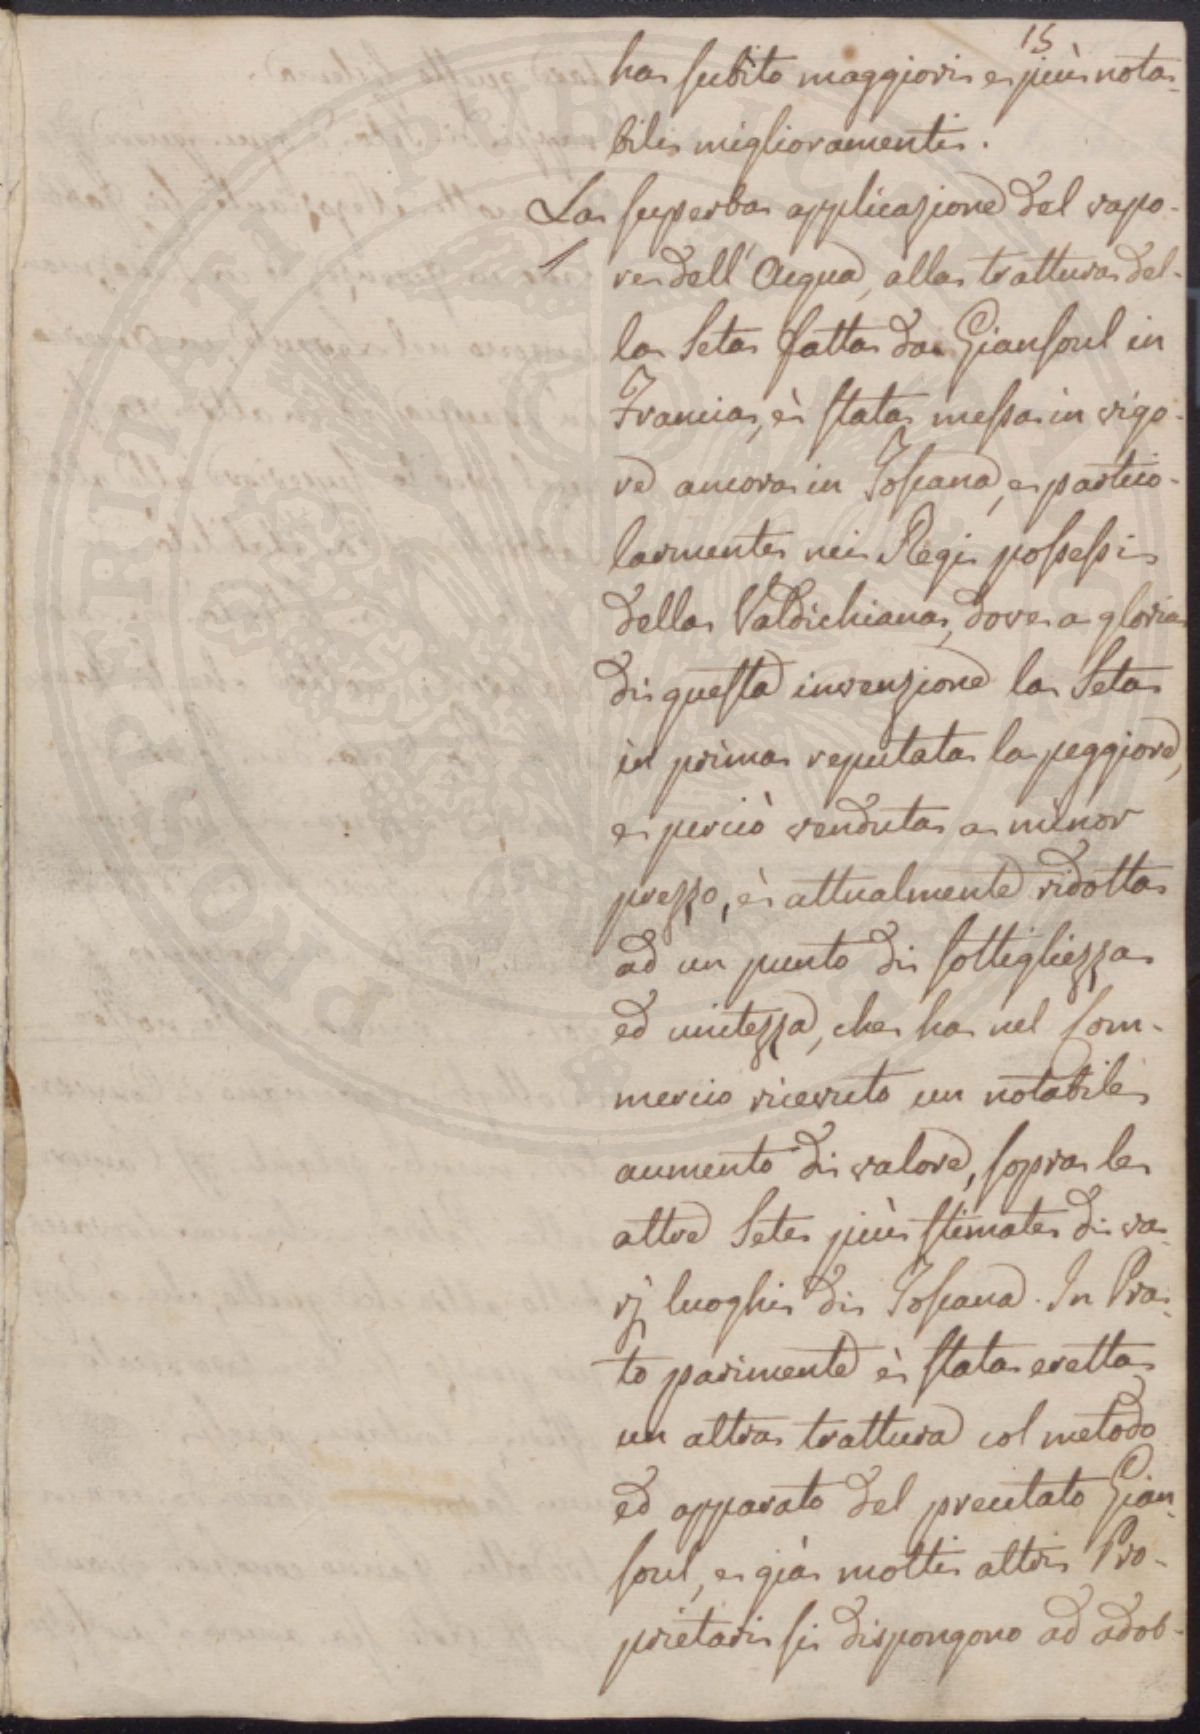 15
ha subito maggiori e più nota-
bili miglioramenti.
La superba applicazione del vapo-
re dell'Acqua, alla trattura del-
la Seta fatta da Giansoul in
Francia, è stata messa in vigo-
re ancora in Toscana, e partico-
larmente nei Regi possessi
della Valdichiana, dove a gloria
di questa invenzione la Seta
in prima reputata la peggiore,
e perciò venduta a minor
prezzo, è attualmente ridotta
ad un punto di sottigliezza
ed unitezza, che ha nel Com-
mercio ricevuto un notabile
aumento di valore, sopra le
altre Sete più stimate di va-
rj luoghi di Toscana. In Pra-
to parimente è stata eretta
un altra trattura col metodo
ed apparato del precitato Gian-
soul, e già molti altri Pro-
prietari si dispongono ad adob-
PROSPERITATI PUBLICAE